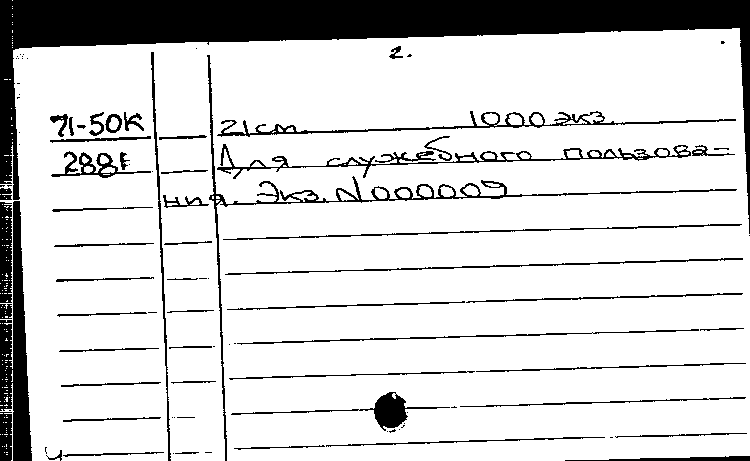 2.
71-50К 21см. 1000 экз.
288г Для служебного пользова-
ния. Экз. N000009